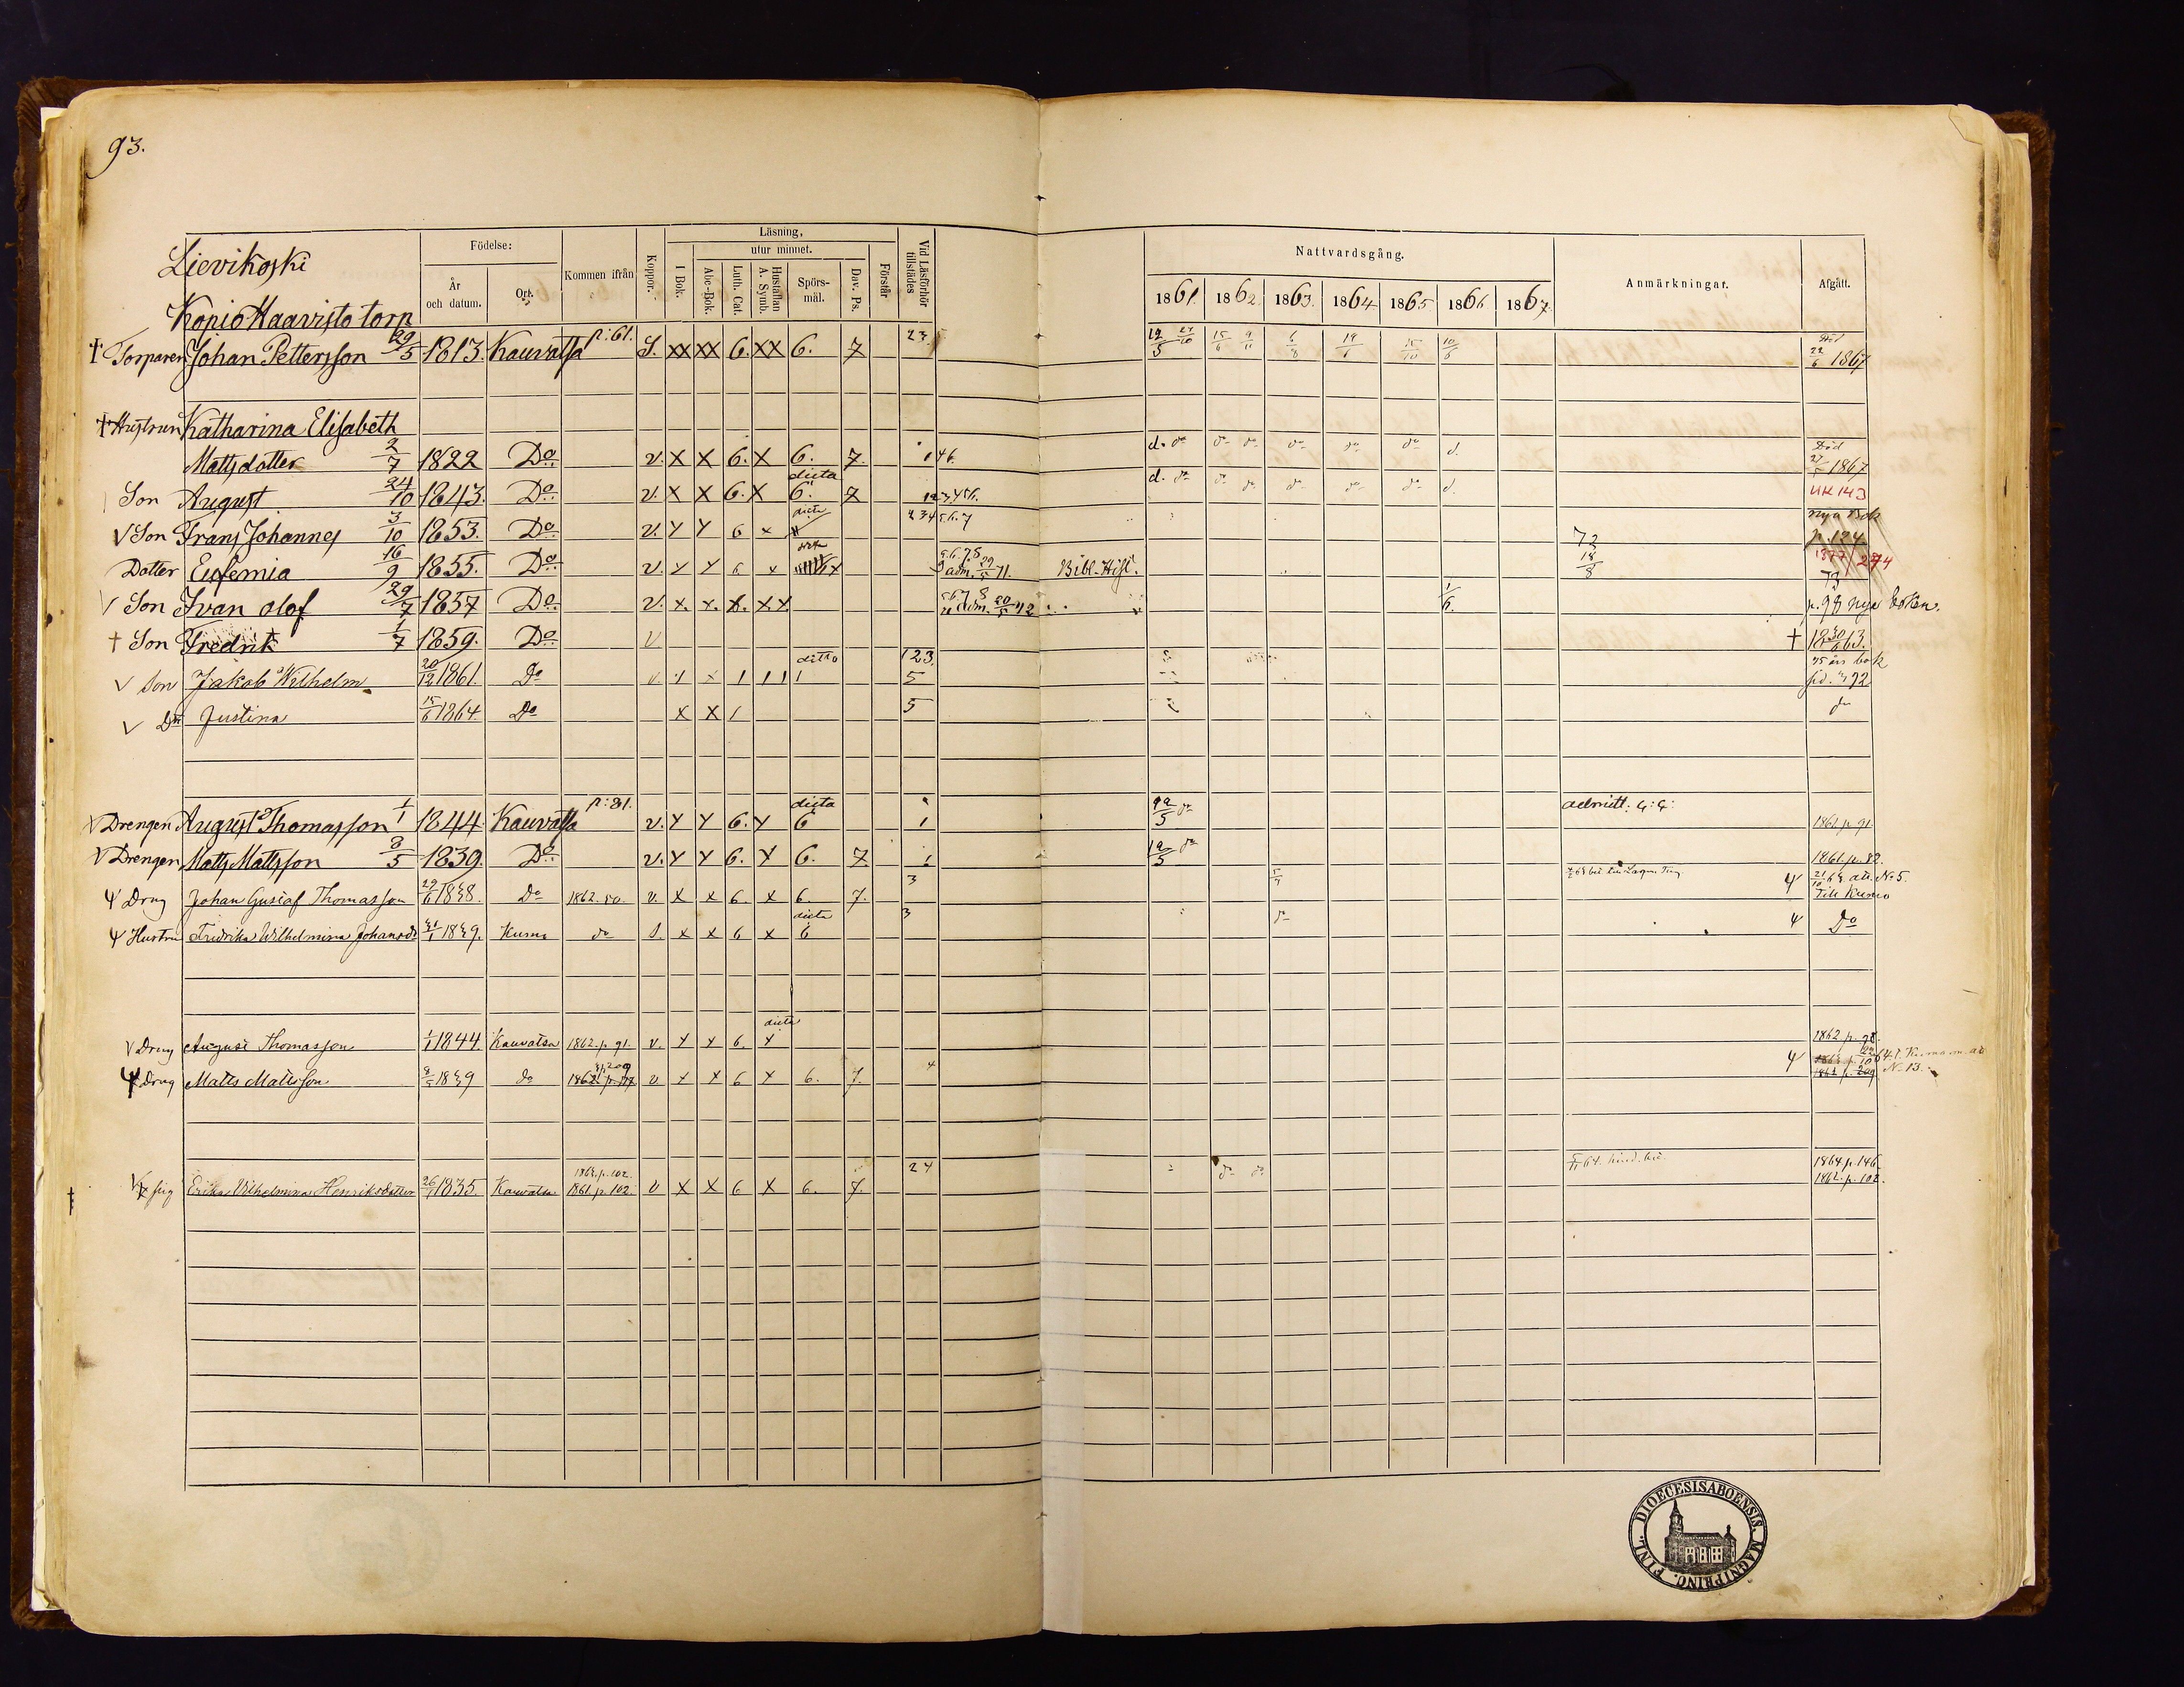 93.
Lievikoski
Kopio Haavisto torp
Födelse:
År och datum.
Ort.
Kommen ifrån
Koppor.
Läsning,
utur minnet.
I Bok.
Abc-Bok.
Luth. Cat.
Hustaflan A. Symb.
Spörs-mål.
Dav. Ps.
Förstår
Vid Läsförhör tillstädes
Nattvardsgång.
1861. 1862. 1863. 1864. 1865. 1866. 1867.
Anmärkningar.
Afgått.
† Torparen Johan Pettersson 29/5 1813. Kauvatsa p:61. S. XX XX 6. XX 6. 7 23 12/5 27/10 15/6 9/11 6/8 19/6 15/10 10/6 Död 22/6 1867
† Hustrun Katharina Elisabeth
Mattsdotter 2/7 1822 Do v. X X 6. X 6. 7. 146. d. do do do do do do d. Död 1867
Son August 24/10 1843. Do v. X X 6. X dicta 6. 7 123456. d. do do do do do do d. UK 143
V Son Frans Johannes 3/10 1853. Do v. Y Y 6 x dicta 234567 nya Bok p. 124
Dotter Eufemia 16/9 1855. Do v. Y Y 6 x 5.6.7.8 adm. 29/5 71. Bibl. Hist. 72 18/8 1877/274
V Son Ivan Olof 29/7 1857 Do v. x. x. X. X X 5678 adm. 20/5 72 1/6. p. 98 nya boken.
† Son Fredrik 1/7 1859. Do v † 1830/6 63.
V Son Jakob Wilhelm 20/12 1861. Do v. dicta 123. 5 75 års bok sid. 92
V Dr Justina 15/6 1864. Do X X 1 5 do
V Drengen August Thomasson 1/1 1844 Kauvatsa p:81. v. Y Y 6. Y dicta 6 1 12/5 do admitt: G:G: 1861 p 91
V Drengen Matts Mattsson 8/5 1839. Do v. Y Y 6. Y 6. 7 1 12/5 do 1861. p. 82.
Ψ Dreng Johan Gustaf Thomasson 29/6 1838. Do 1862. 80. v. X x 6. x 6. 7. 3 5/4 Ψ 21/10 63 att. No 5. Till Kumo
Ψ Hustru Fredrika Wilhelmina Johansdr 1839. Kumo do S. x x 6 x dicta 6 3 do Ψ Do
V Dreng August Thomasson 1/1 1844 Kauvatsa 1862. p. 91. v. Y x 6. x dicta 1862. p. 98.
Ψ Dreng Matts Mattsson 8/5 1839 do v x x 6 x 6. 7. 4 Ψ No 13.
V Pig Erika Wilhelmina Henriksdotter 26/1 1835. Kauvatsa 1863. p. 102. 1861. p. 102. v X X 6 X 6. 7. 24 do do 64. 1864. p. 146. 1862. p. 102.
DIOECESIS ABOENSIS. MAGNI PRINC. FINL.